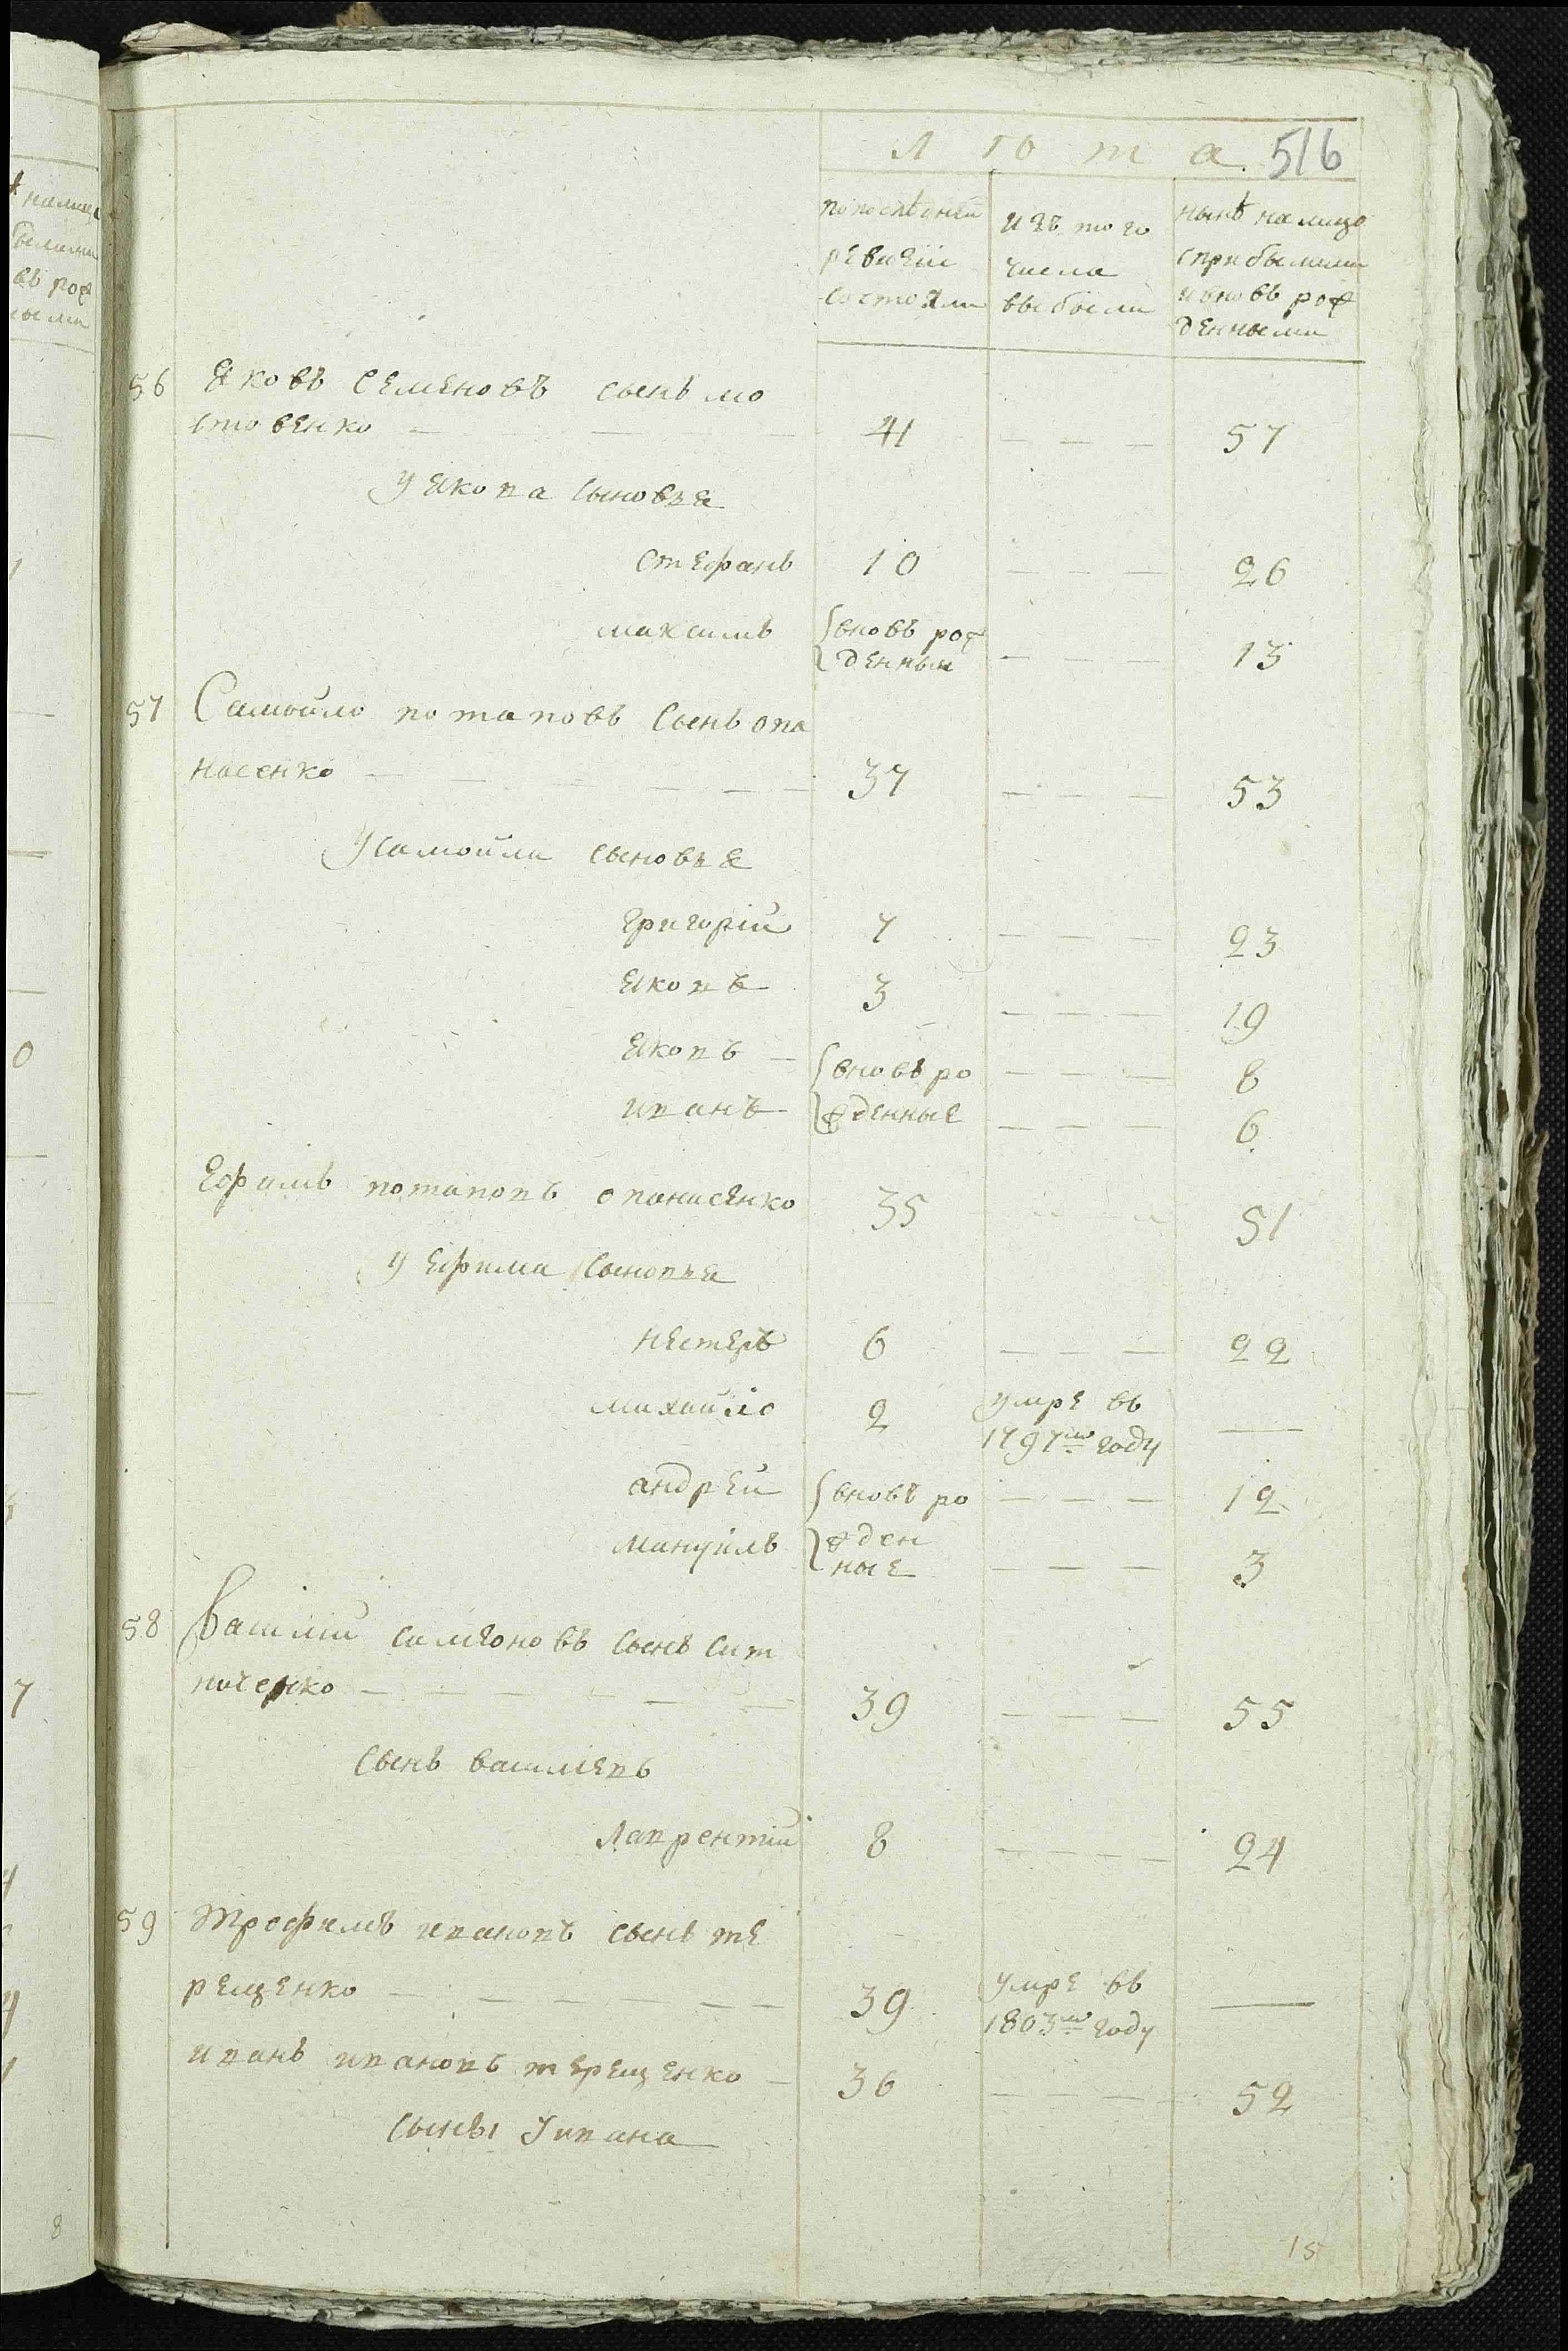 лѣта 516
попослѣдней ревизіи состояли
изъ того числа выбыли
нынѣ налицо сприбылыми ивновь рожденными
56 Яковъ Семеновъ сынъ мо
стовенко 41 — — — 57
у Якова Сыновья
Стефанъ 10 — — — 26
максимъ вновь рожденный — — — 13
57 Самойло потаповъ Сынъ опа
насенко 37 — — — 53
у самойла сыновья
Григорій 7 — — — 23
Яковъ 3 — — — 19
Яковъ вновь ро — — — 8
иванъ жденные — — — 6
Ефимъ потаповъ опанасенко 35 — — — 51
у Ефима Сыновья
нестеръ 6 — — — 22
михайло 2 умре въ 1797м году —
андрей вновь ро — — — 12
мануилъ жденные — — — 3
58 Василий симоновъ сынъ сит
ниченко 39 — — — 55
Сынъ василевъ
Лаврентий 8 — — — 24
59 трофимъ ивановъ сынъ те
рещенко 39 умре въ 1803м году —
иванъ ивановъ терещенко 36 — — — 52
Сыны у ивана
15